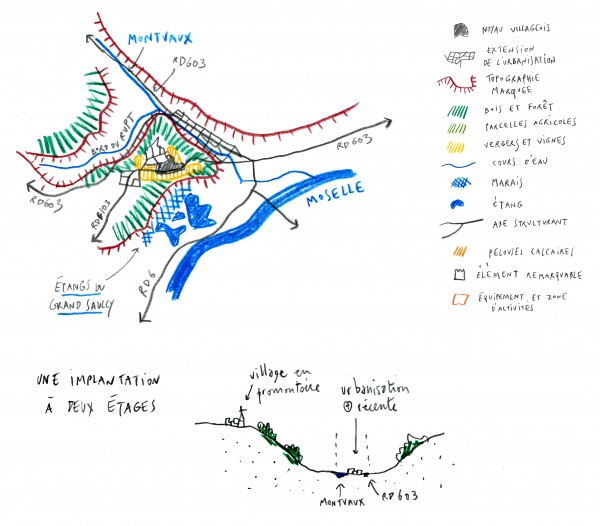 MONTVAUX
RD603
BORD DU RUPT
RD603
RD603
RD103
MOSELLE
ÉTANGS DU
GRAND SAULCY
RD6
NOYAU VILLAGEOIS
EXTENSION
DE L'URBANISATION
TOPOGRAPHIE
MARQUÉE
BOIS ET FORÊT
PARCELLES AGRICOLES
VERGERS ET VIGNES
COURS D'EAU
MARAIS
ÉTANG
AXE STRUCTURANT
PELOUSES CALCAIRES
ÉLÉMENT REMARQUABLE
ÉQUIPEMENT ET ZONE
D'ACTIVITÉS
UNE IMPLANTATION
À DEUX ÉTAGES
village en
promontoire
urbanisation
+ récente
MONTVAUX
RD603